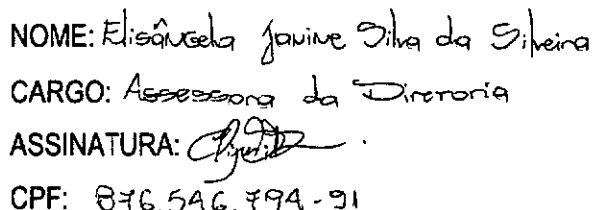 NOME: Elisângela Janine Silva da Silveira
CARGO: Assessora da Diretoria
ASSINATURA:
CPF: 876.546.794-91